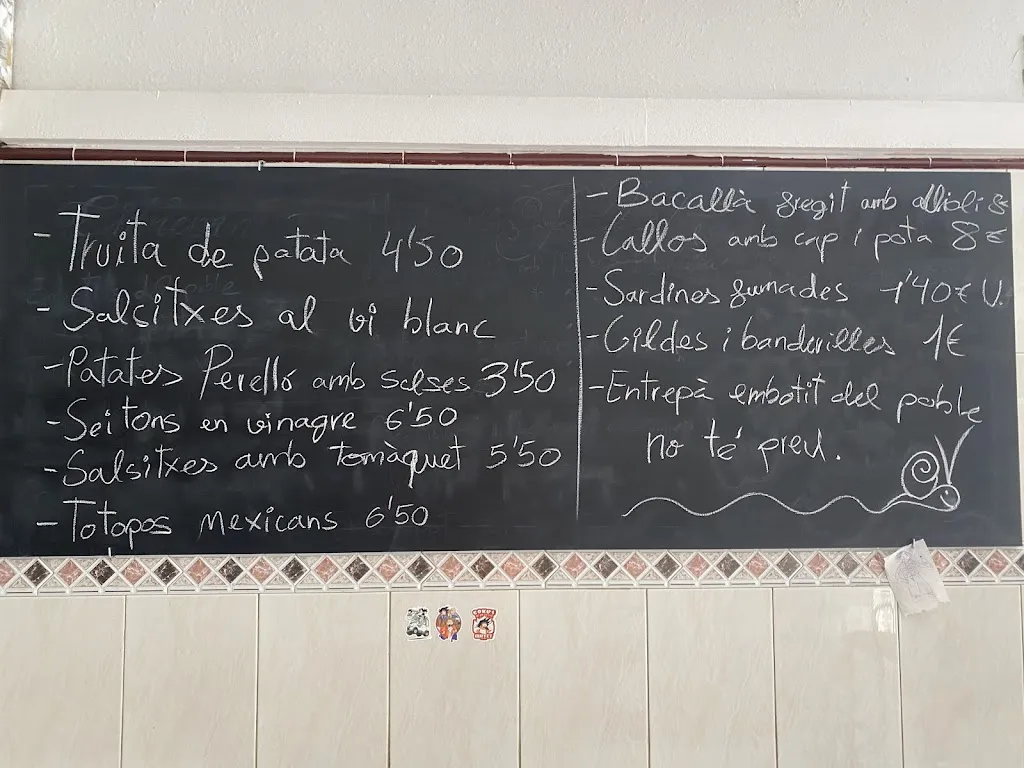 - Truita de patata 4'50
- Salsitxes al vi blanc
- Patates Perelló amb salses 3'50
- Seitons en vinagre 6'50
- Salsitxes amb tomàquet 5'50
- Totopos mexicans 6'50
- Bacallà fregit amb allioli 8€
- Callos amb cap i pota 8€
- Sardines fumades 1'40€ U.
- Gildes i banderilles 1€
- Entrepà embotit del poble
no té preu.